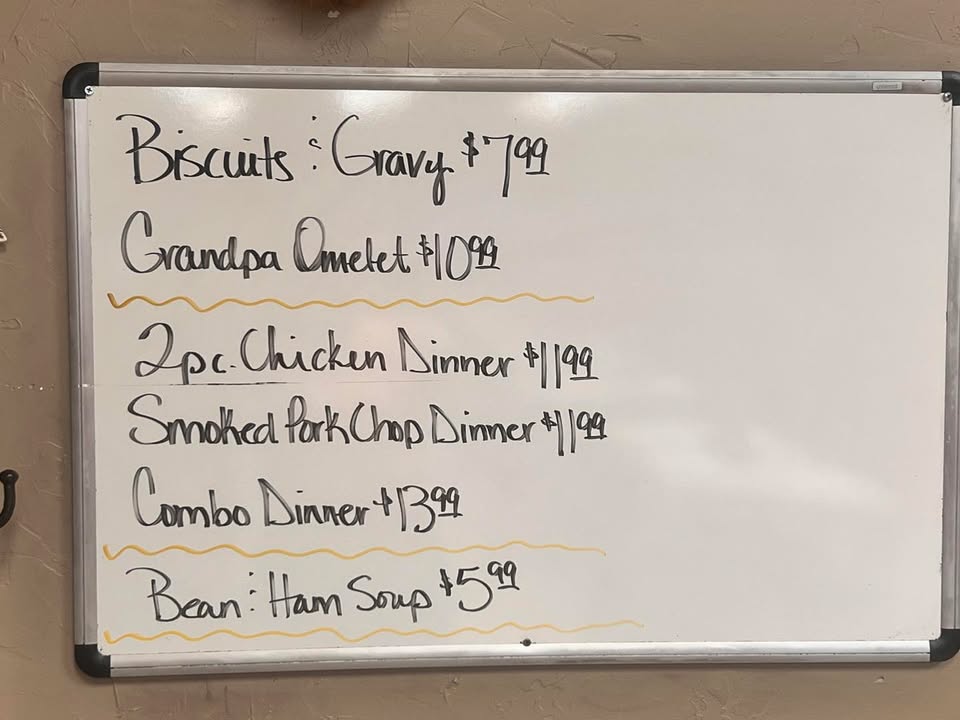 Biscuits & Gravy $7.99
Grandpa Omelet $10.99
2pc. Chicken Dinner $11.99
Smoked Pork Chop Dinner $11.99
Combo Dinner $13.99
Bean & Ham Soup $5.99